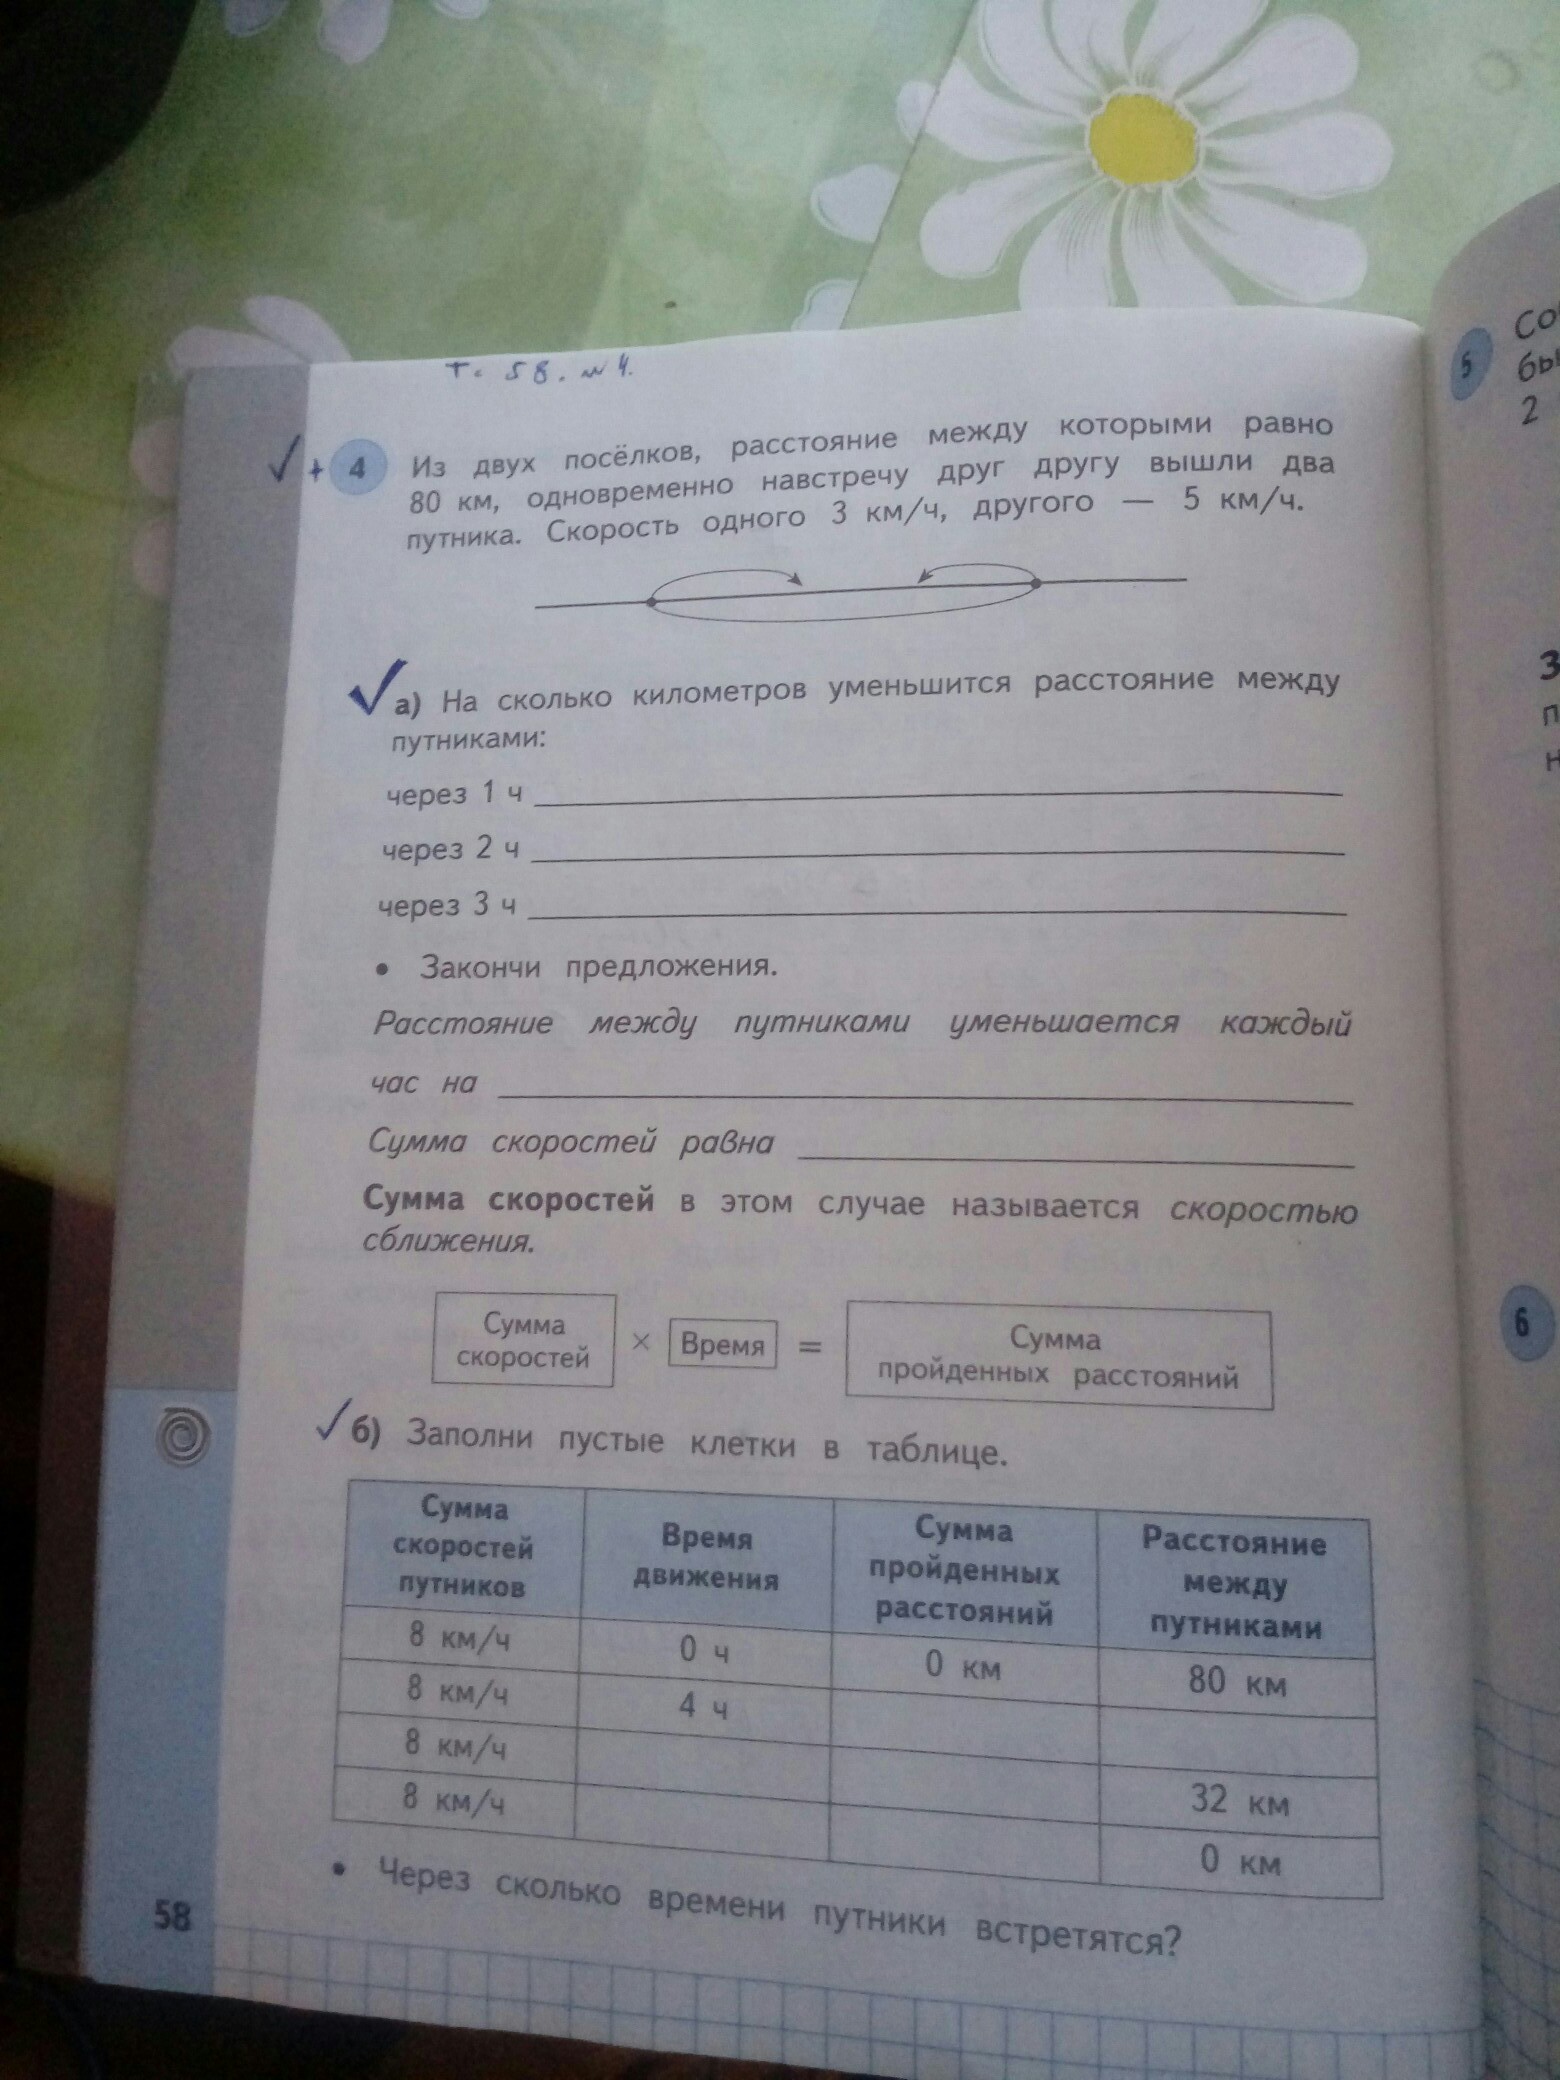 т. 58. №4.
+ 4 Из двух посёлков, расстояние между которыми равно
80 км, одновременно навстречу друг другу вышли два
путника. Скорость одного 3 км/ч, другого — 5 км/ч.
а) На сколько километров уменьшится расстояние между
путниками:
через 1 ч
через 2 ч
через 3 ч
• Закончи предложения.
Расстояние между путниками уменьшается каждый
час на
Сумма скоростей равна
Сумма скоростей в этом случае называется скоростью
сближения.
Сумма скоростей × Время = Сумма пройденных расстояний
б) Заполни пустые клетки в таблице.
Сумма скоростей путников Время движения Сумма пройденных расстояний Расстояние между путниками
8 км/ч 0 ч 0 км 80 км
8 км/ч 4 ч
8 км/ч 32 км
8 км/ч 0 км
• Через сколько времени путники встретятся?
58
5
2
6